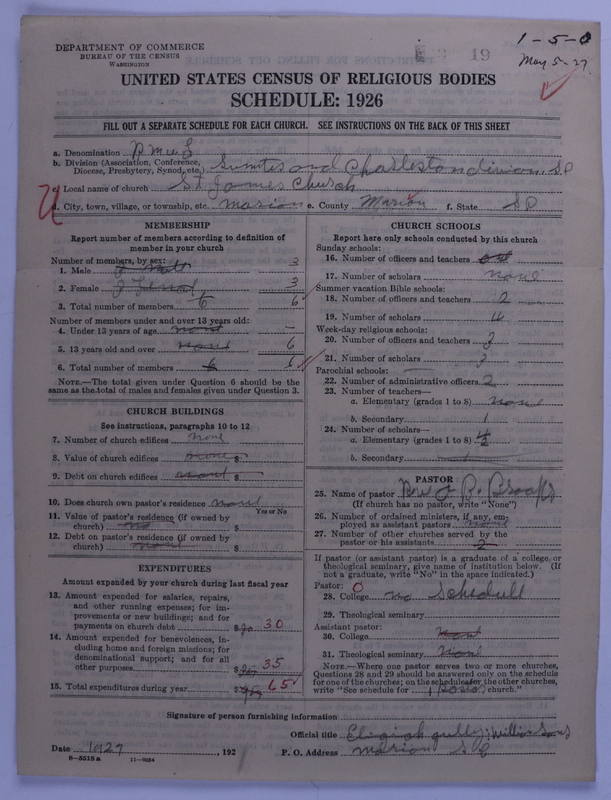 DEPARTMENT OF COMMERCE
BUREAU OF THE CENSUS
WASHINGTON
19
1-5-0
May 5-27
UNITED STATES CENSUS OF RELIGIOUS BODIES
SCHEDULE: 1926
FILL OUT A SEPARATE SCHEDULE FOR EACH CHURCH. SEE INSTRUCTIONS ON THE BACK OF THIS SHEET
a. Denomination
b. Division (Association, Conference, Diocese, Presbytery, Synod, etc.) Sumter and Charleston
c. Local name of church St James Church
d. City, town, village, or township, etc. Marion e. County Marion f. State
MEMBERSHIP
Report number of members according to definition of
member in your church
Number of members, by sex:
1. Male 3
2. Female 3
3. Total number of members 6 6
Number of members under and over 13 years old:
4. Under 13 years of age none –
5. 13 years old and over none 6
6. Total number of members 6 6
NOTE.—The total given under Question 6 should be the
same as the total of males and females given under Question 3.
CHURCH BUILDINGS
See instructions, paragraphs 10 to 12
7. Number of church edifices none
8. Value of church edifices none $
9. Debt on church edifices none $
10. Does church own pastor's residence none
Yes or No
11. Value of pastor's residence (if owned by
church) no $
12. Debt on pastor's residence (if owned by
church) none $
EXPENDITURES
Amount expended by your church during last fiscal year
13. Amount expended for salaries, repairs,
and other running expenses; for im-
provements or new buildings; and for
payments on church debt $ 30
14. Amount expended for benevolences, in-
cluding home and foreign missions; for
denominational support; and for all
other purposes $ 35
15. Total expenditures during year $ 65
CHURCH SCHOOLS
Report here only schools conducted by this church
Sunday schools:
16. Number of officers and teachers
17. Number of scholars none
Summer vacation Bible schools:
18. Number of officers and teachers 2
19. Number of scholars 4
Week-day religious schools:
20. Number of officers and teachers 3
21. Number of scholars 3
Parochial schools:
22. Number of administrative officers 2
23. Number of teachers—
a. Elementary (grades 1 to 8) none
b. Secondary 1
24. Number of scholars—
a. Elementary (grades 1 to 8)
b. Secondary
PASTOR
25. Name of pastor J B.
(If church has no pastor, write "None")
26. Number of ordained ministers, if any, em-
ployed as assistant pastors none
27. Number of other churches served by the
pastor or his assistants 2
If pastor (or assistant pastor) is a graduate of a college or
theological seminary, give name of institution below. (If
not a graduate, write "No" in the space indicated.)
Pastor: 0
28. College no Schedull
29. Theological seminary
Assistant pastor:
30. College None
31. Theological seminary None
NOTE.—Where one pastor serves two or more churches,
Questions 28 and 29 should be answered only on the schedule
for one of the churches; on the schedules for the other churches,
write "See schedule for church."
Signature of person furnishing information
Official title
Date 1927, 192 P. O. Address Marion S C
8-5518 a 11-9684